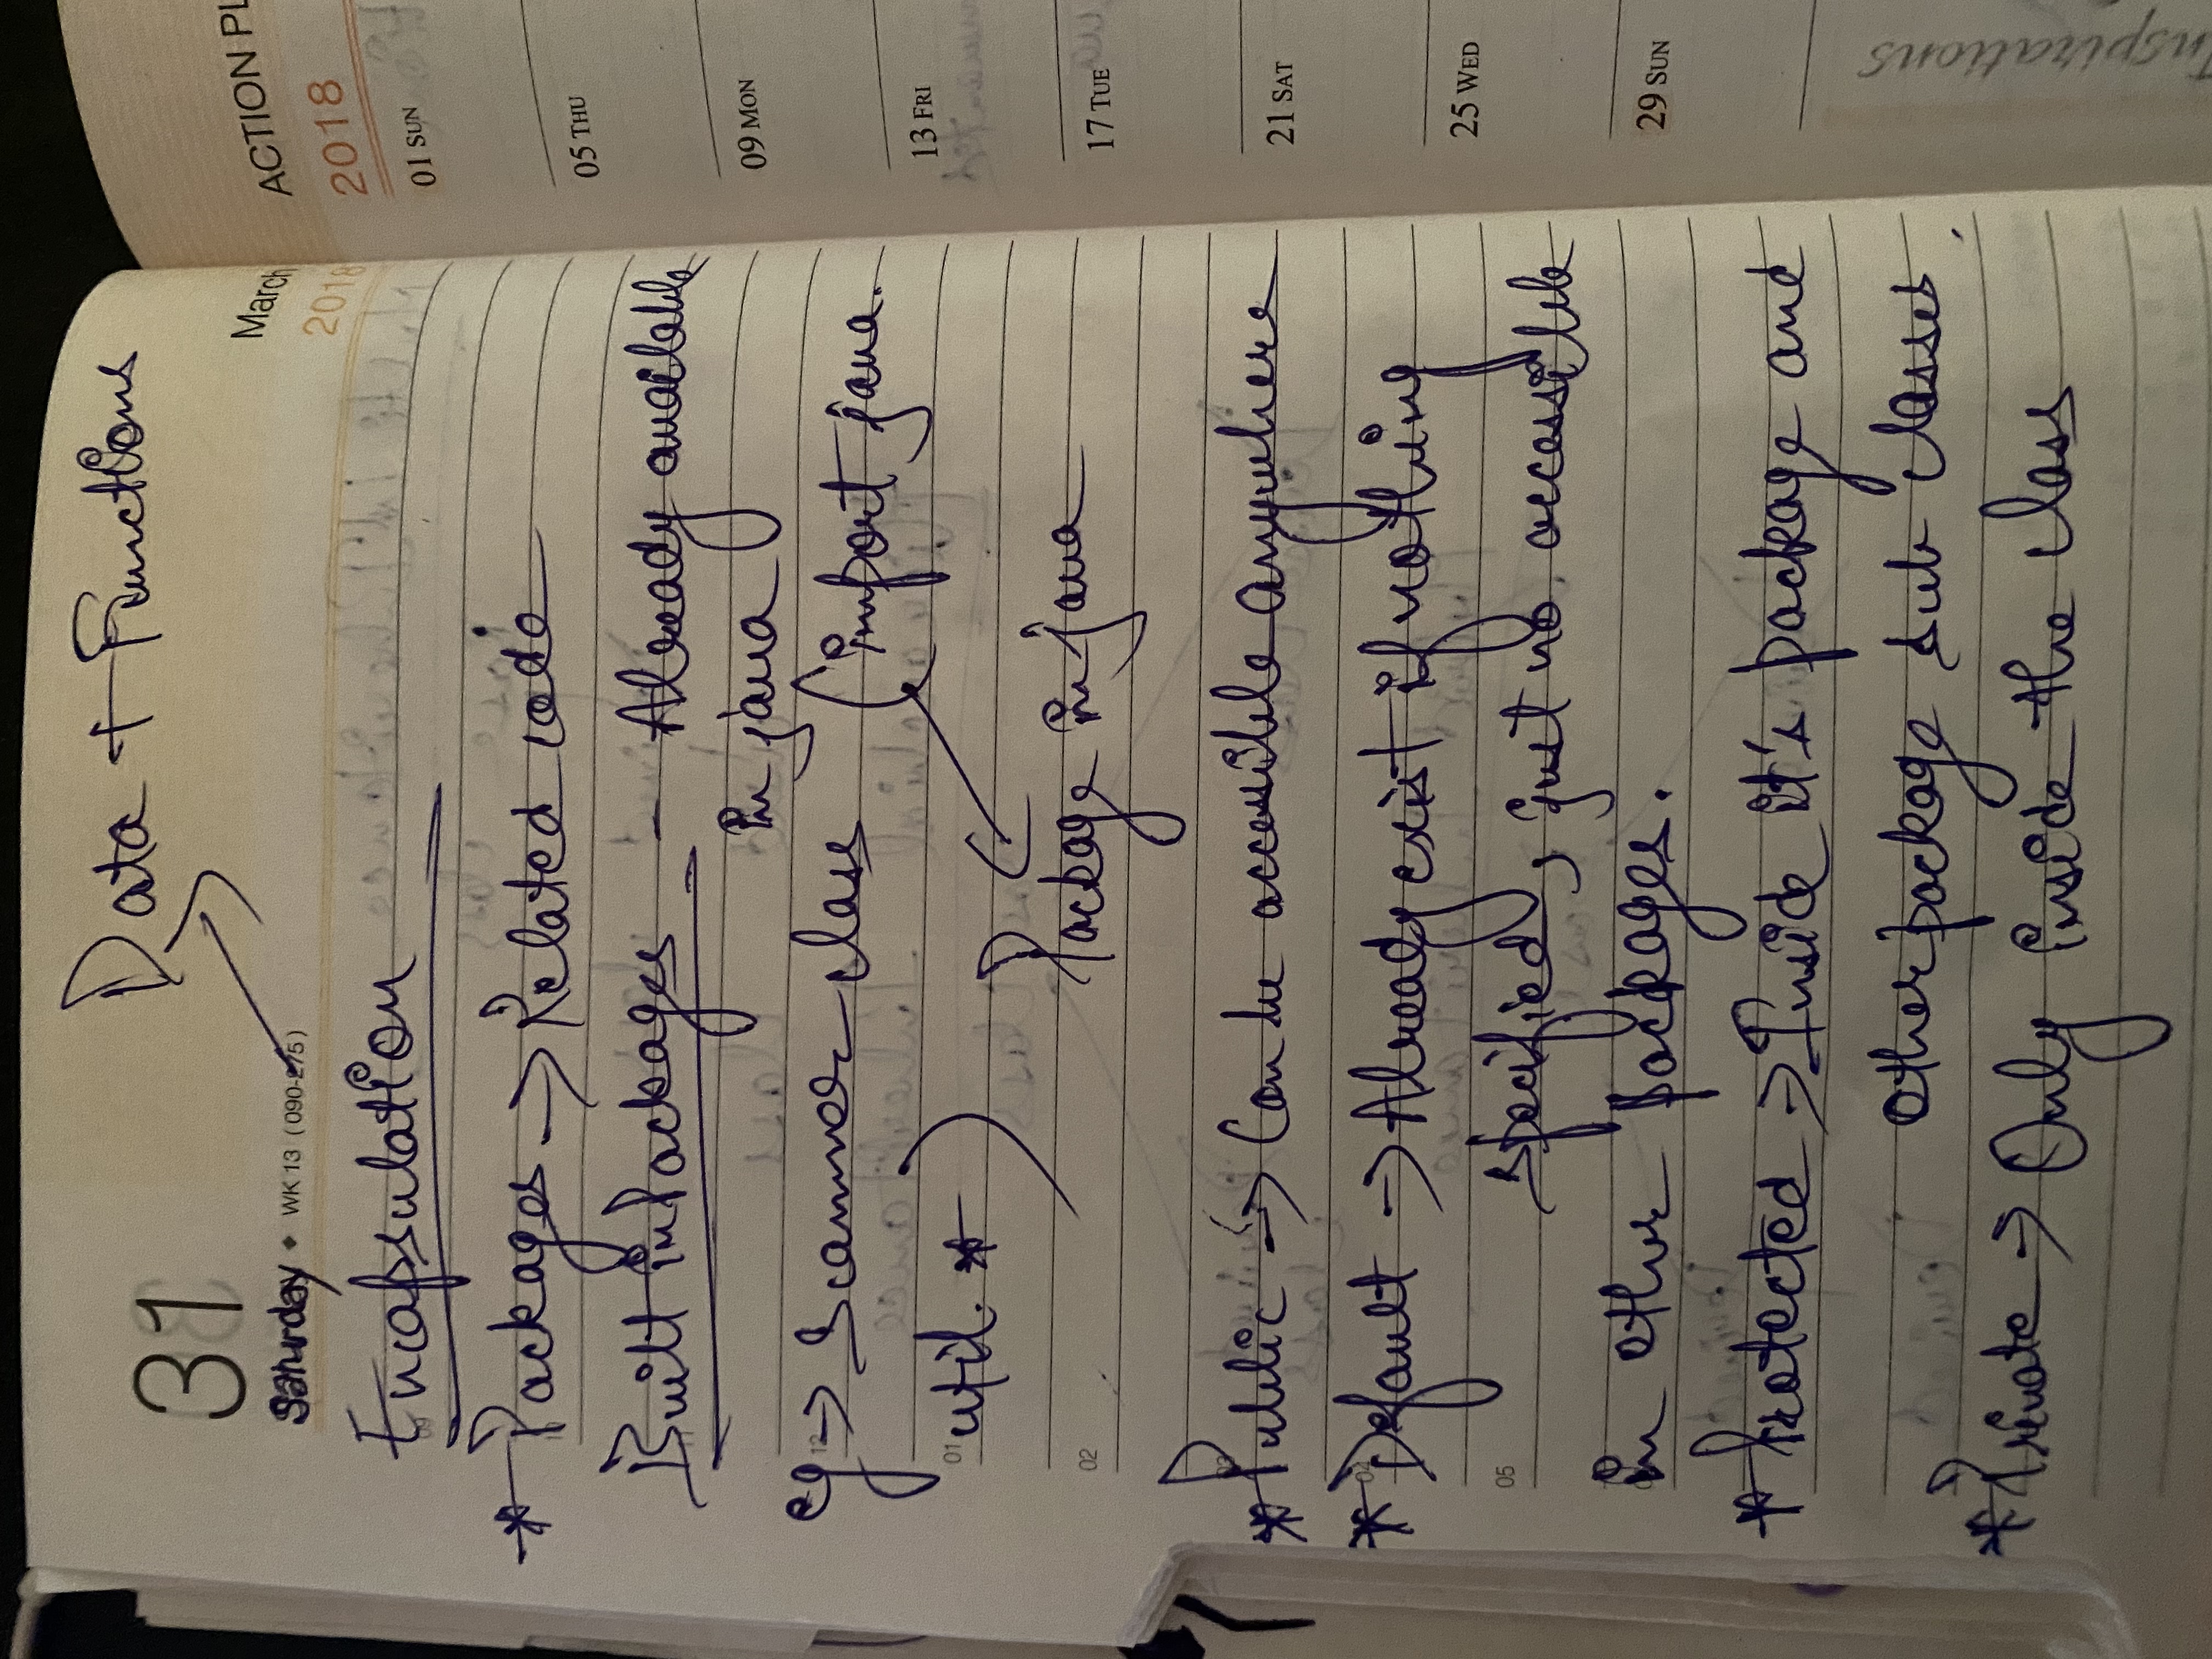 Data + Functions
31
March
Saturday ◆ WK 13 (090-275)
2018
Encapsulation
* Packages → Related code
Built in Packages - Already available
in java
eg → Scanner class (import java.
01 util. *)
Package in java
02
* Public → Can be accessible anywhere
* Default → Already exist if nothing
05 specified, just no accessible
in other packages.
* Protected → Inside it's package and
other package sub classes.
* Private → Only inside the class
ACTION PL
2018
01 SUN
05 THU
09 MON
13 FRI
17 TUE
21 SAT
25 WED
29 SUN
Inspirations